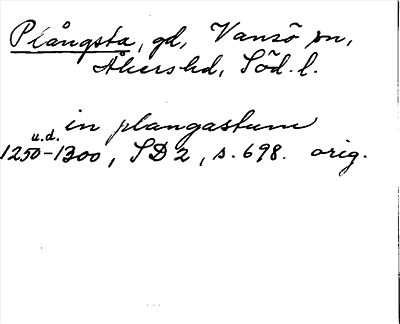 Plångsta, gd, Vansö sn,
Åkers hd, Söd. l.
in plangastum
u.d.
1250-1300, SD 2, s. 698. orig.